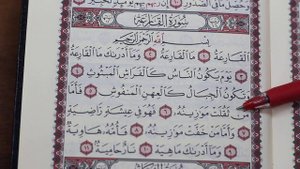 وَحُصِّلَ مَا فِي الصُّدُورِ ۝ إِنَّ رَبَّهُم بِهِمْ يَوْمَئِذٍ لَّخَبِيرٌ ۝
سُورَةُ القَارِعَةِ
بِسْمِ اللَّهِ الرَّحْمَٰنِ الرَّحِيمِ
الْقَارِعَةُ ۝ مَا الْقَارِعَةُ ۝ وَمَا أَدْرَاكَ مَا الْقَارِعَةُ
۝ يَوْمَ يَكُونُ النَّاسُ كَالْفَرَاشِ الْمَبْثُوثِ
۝ وَتَكُونُ الْجِبَالُ كَالْعِهْنِ الْمَنفُوشِ ۝ فَأَمَّا
مَن ثَقُلَتْ مَوَازِينُهُ ۝ فَهُوَ فِي عِيشَةٍ رَّاضِيَةٍ
۝ وَأَمَّا مَنْ خَفَّتْ مَوَازِينُهُ ۝ فَأُمُّهُ هَاوِيَةٌ
۝ وَمَا أَدْرَاكَ مَا هِيَهْ ۝ نَارٌ حَامِيَةٌ ۝